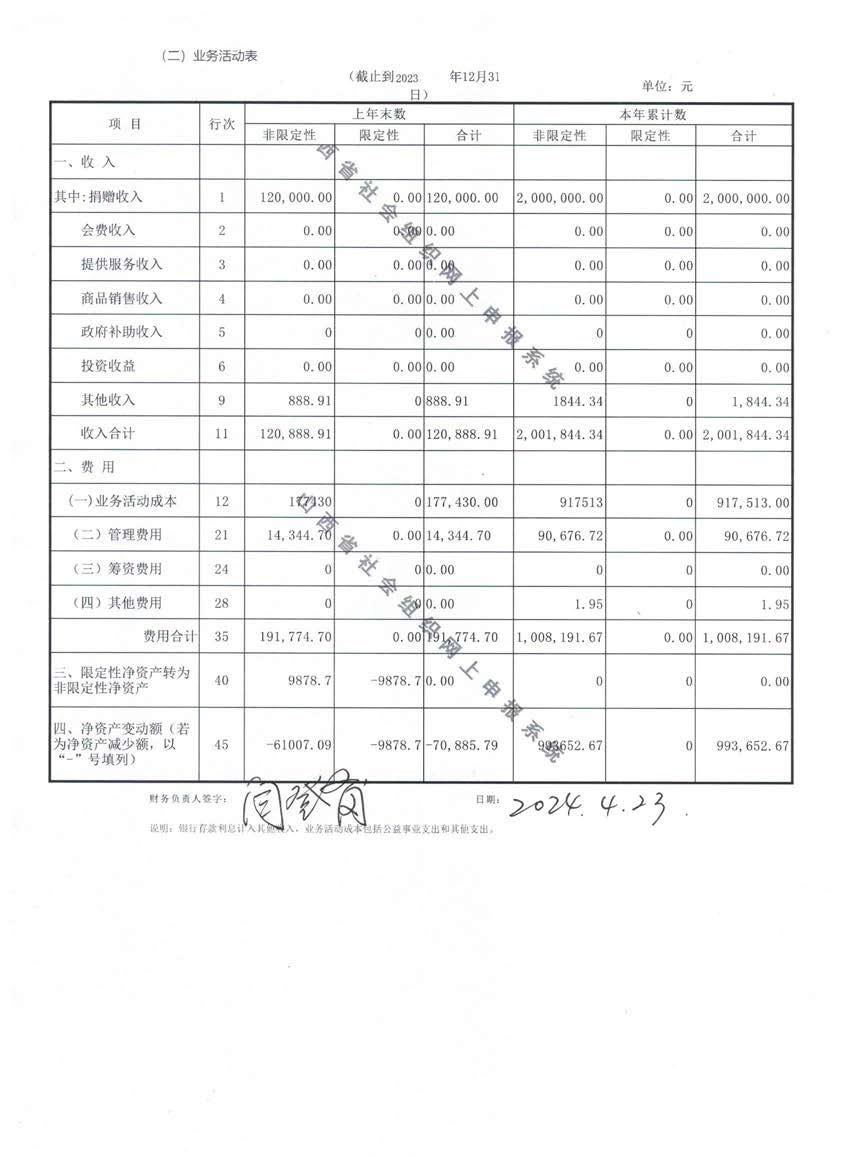 （二）业务活动表
（截止到2023 年12月31
日）
单位：元
项 目 行次 上年末数 本年累计数
非限定性 限定性 合计 非限定性 限定性 合计
一、收 入
其中:捐赠收入 1 120,000.00 0.00 120,000.00 2,000,000.00 0.00 2,000,000.00
会费收入 2 0.00 0.00 0.00 0.00 0.00 0.00
提供服务收入 3 0.00 0.00 0.00 0.00 0.00 0.00
商品销售收入 4 0.00 0.00 0.00 0.00 0.00 0.00
政府补助收入 5 0 0 0.00 0 0 0.00
投资收益 6 0.00 0.00 0.00 0.00 0.00 0.00
其他收入 9 888.91 0 888.91 1844.34 0 1,844.34
收入合计 11 120,888.91 0.00 120,888.91 2,001,844.34 0.00 2,001,844.34
二、费 用
(一)业务活动成本 12 177430 0 177,430.00 917513 0 917,513.00
（二）管理费用 21 14,344.70 0.00 14,344.70 90,676.72 0.00 90,676.72
（三）筹资费用 24 0 0 0.00 0 0 0.00
（四）其他费用 28 0 0 0.00 1.95 0 1.95
费用合计 35 191,774.70 0.00 191,774.70 1,008,191.67 0.00 1,008,191.67
三、限定性净资产转为
非限定性净资产 40 9878.7 -9878.7 0.00 0 0 0.00
四、净资产变动额（若
为净资产减少额，以
“-”号填列） 45 -61007.09 -9878.7 -70,885.79 993652.67 0 993,652.67
西省社会组织网上申报系统
山西省社会组织网上申报系统
财务负责人签字： 日期： 2024.4.23.
说明：银行存款利息计入其他收入，业务活动成本包括公益事业支出和其他支出。